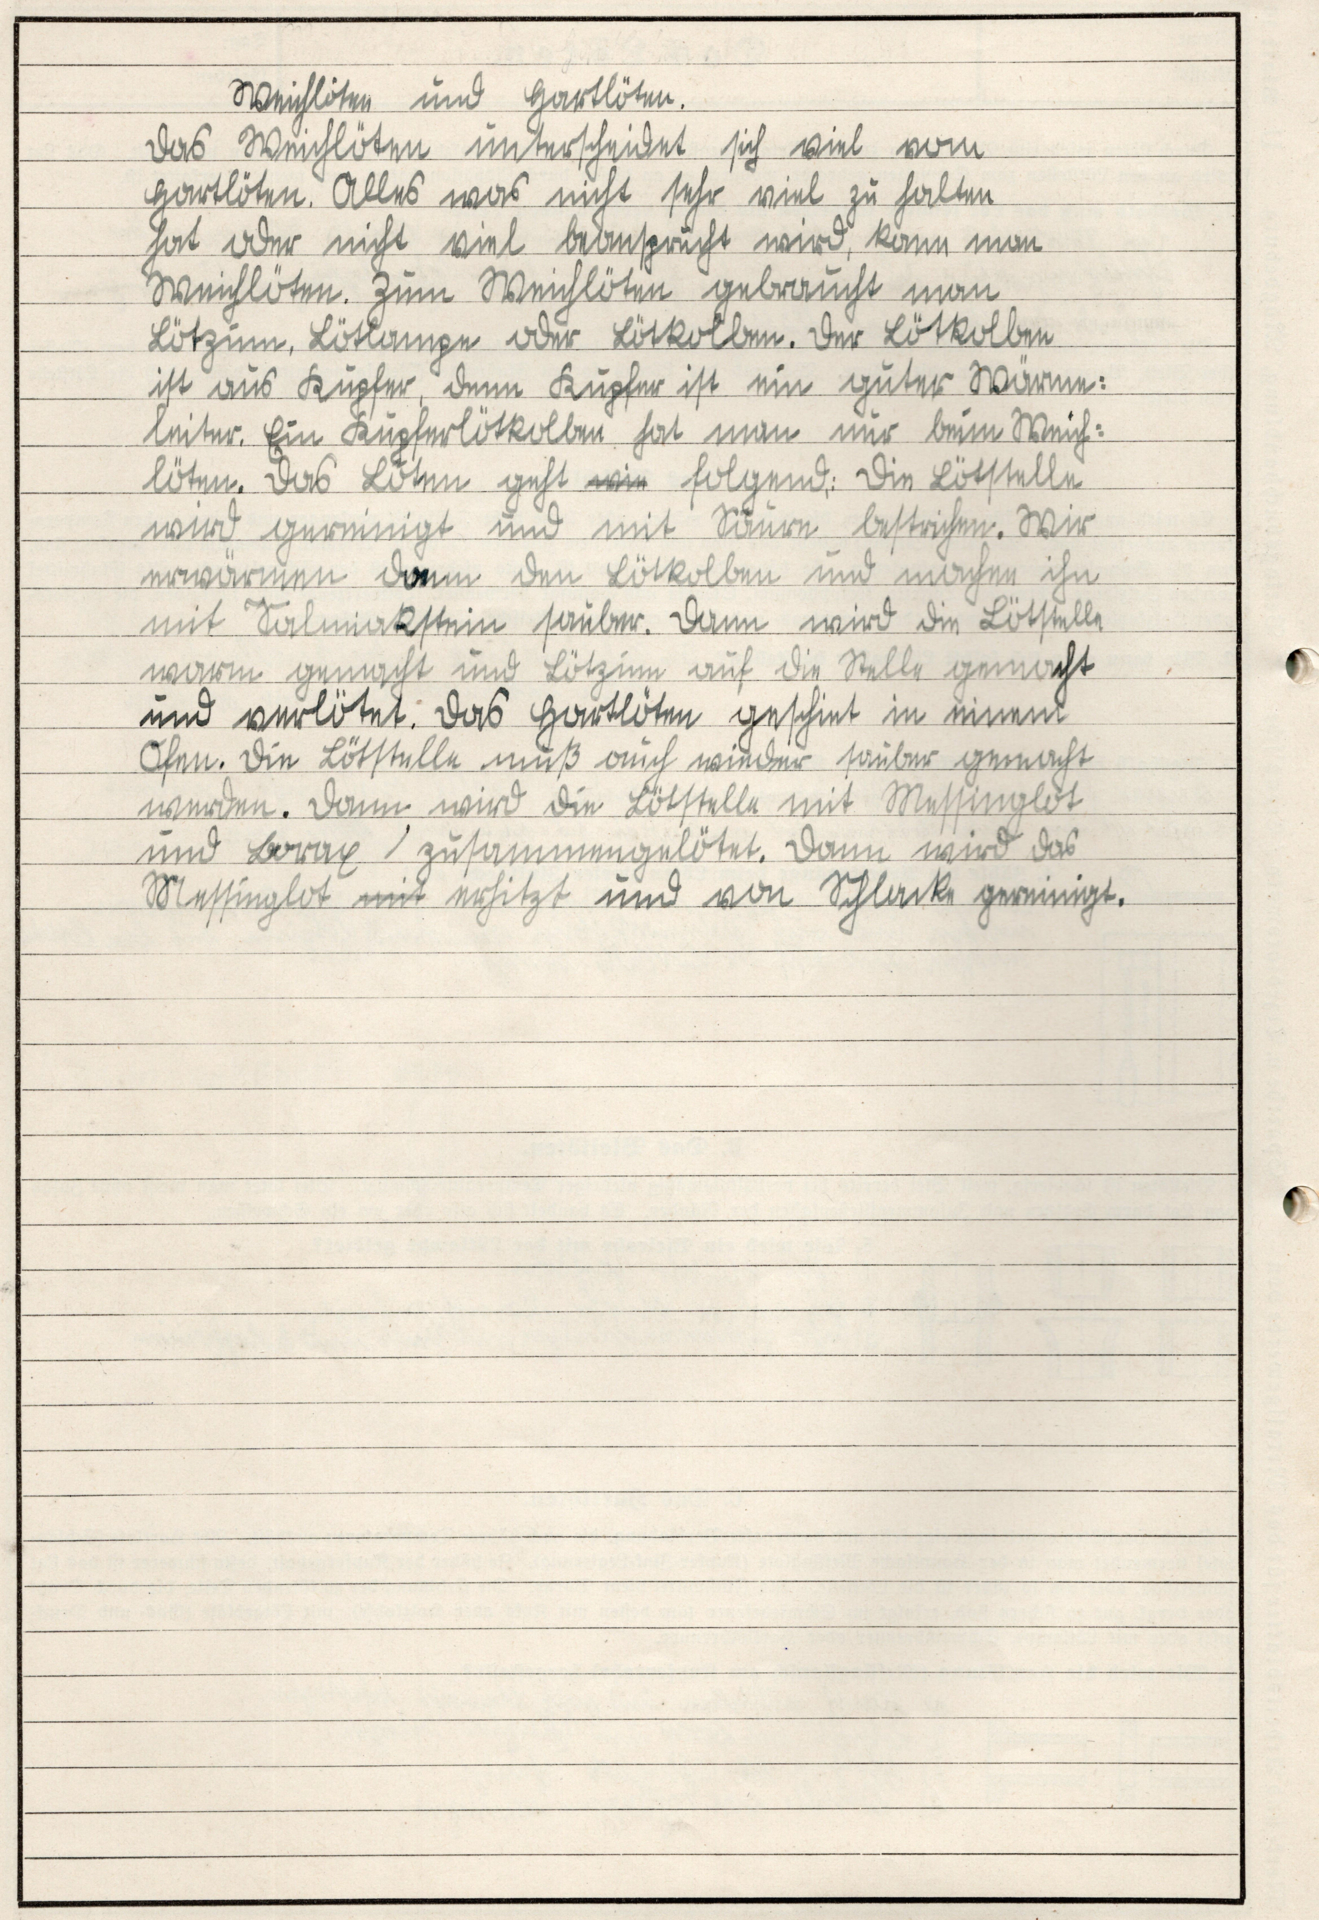 Weichlöten und Hartlöten.
Das Weichlöten unterscheidet sich viel vom
Hartlöten. Alles was nicht sehr viel zu halten
hat oder nicht viel beansprucht wird, kann man
Weichlöten. Zum Weichlöten gebraucht man
Lötzinn, Lötlampe oder Lötkolben. Der Lötkolben
ist aus Kupfer, denn Kupfer ist ein guter Wärme:
leiter. Ein Kupferlötkolben hat man nur beim Weich:
löten. Das Löten geht wie folgend: Die Lötstelle
wird gereinigt und mit Säure bestrichen. Wir
erwärmen dann den Lötkolben und machen ihn
mit Salmiakstein sauber. Dann wird die Lötstelle
warm gemacht und Lötzinn auf die Stelle gemacht
und verlötet. Das Hartlöten geschiet in einem
Ofen. Die Lötstelle muß auch wieder sauber gemacht
werden. Dann wird die Lötstelle mit Messinglot
und Borax / zusammengelötet. Dann wird das
Messinglot mit erhitzt und von Schlacke gereinigt.